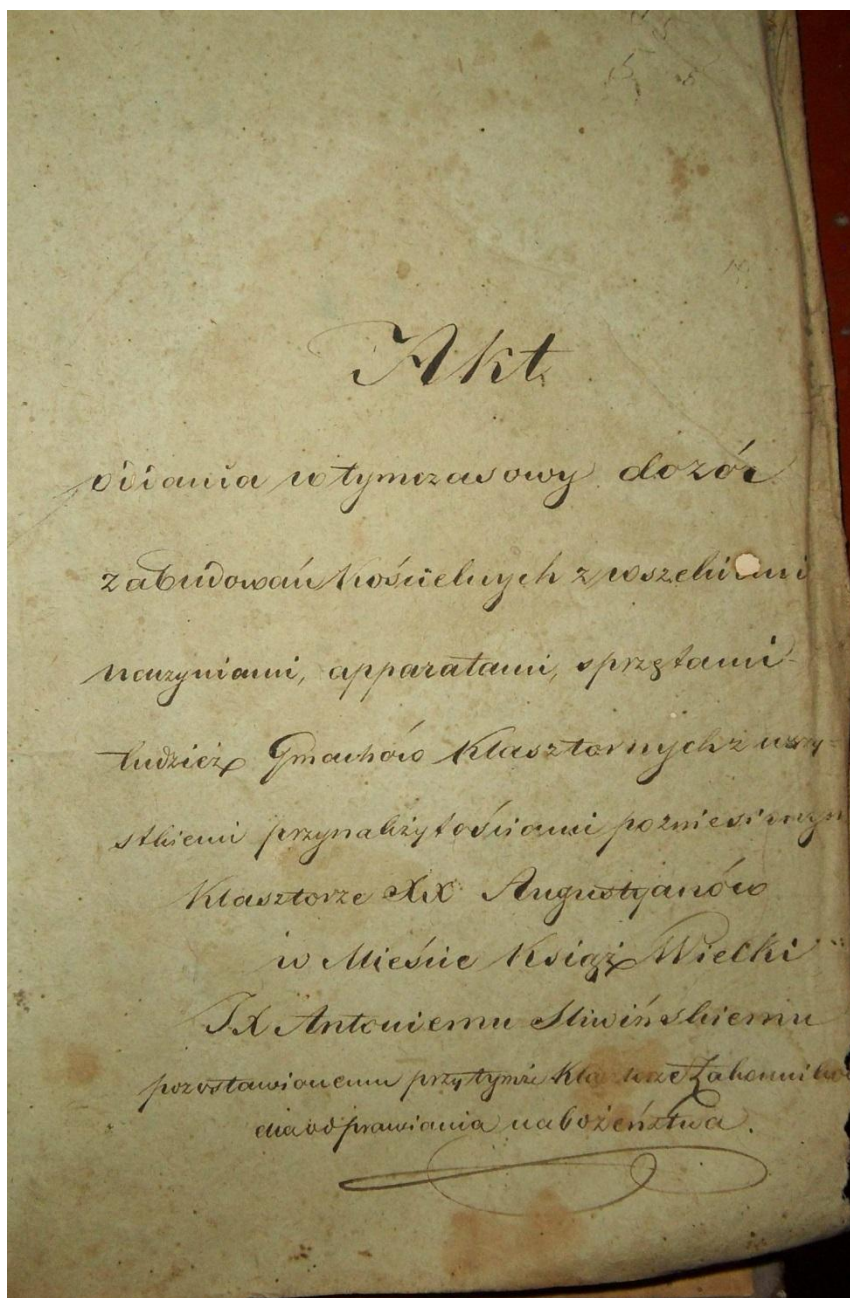 Akt
oddania w tymczasowy dozór
zabudowań Kościelnych z wszelkiemi
naczyniami, apparatami, sprzętami
tudzież Gmachów Klasztornych z wszy-
stkiemi przynależytościami po zniesionym
Klasztorze XX Augustyanów
w Mieście Książ Wielki
JX Antoniemu Śliwińskiemu
pozostawionemu przy tymże Klasztorze Zakonnikowi
dla odprawiania nabożeństwa.